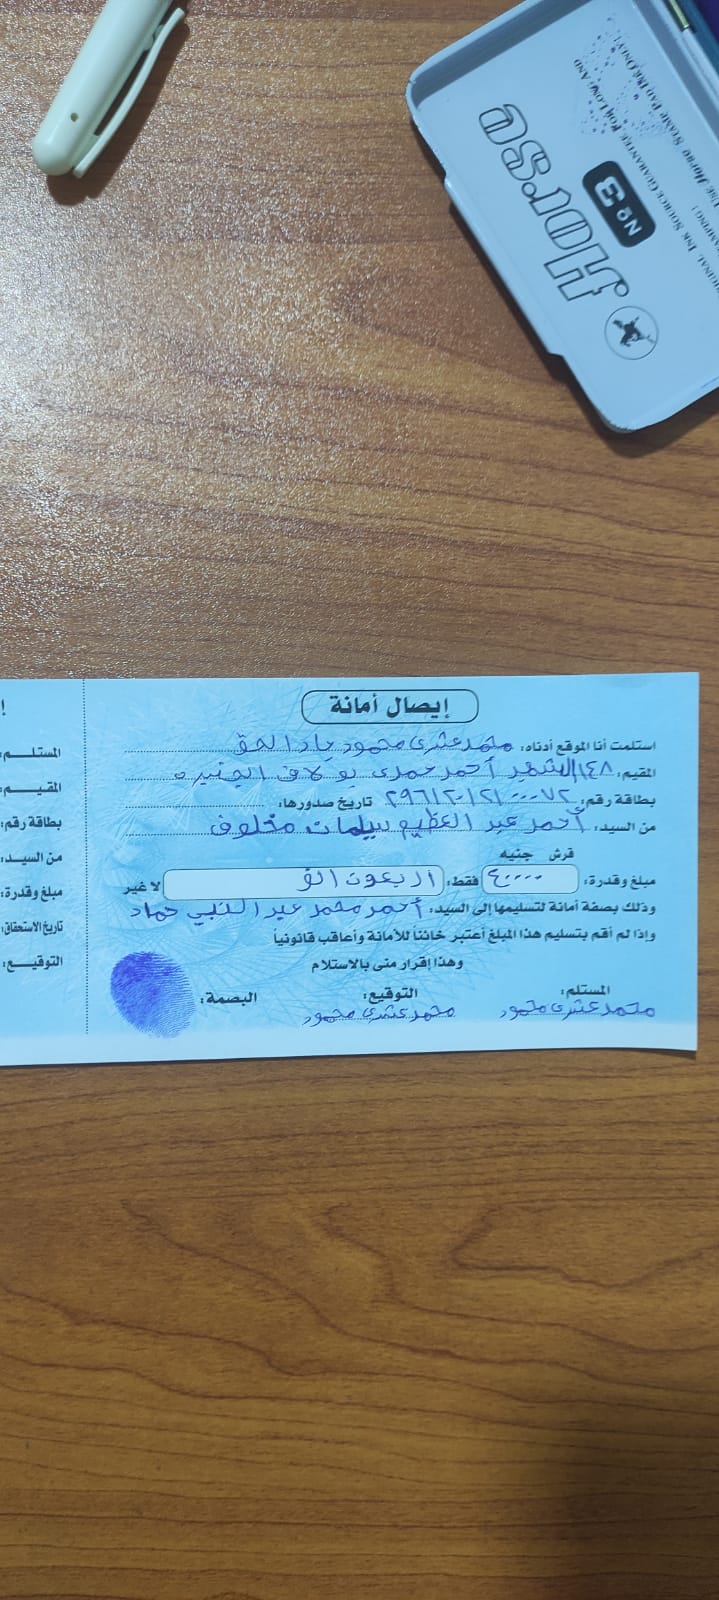 Horse
No. 3
ORIGINAL INK SOURCE GUARANTEE FOR LONG AND
USE Horse STAMP PAD INK ONLY!
إيصال أمانة
استلمت أنا الموقع أدناه: محمد عشرى محمود جاد الحق
المقيم: ١٤٨ الشهر أحمد حمدى بولاق الجيزه
بطاقة رقم: تاريخ صدورها:
من السيد: أحمد عبد العظيم سليمان مخلوف
قرش جنيه
مبلغ وقدرة: ٤٠٠٠٠ فقط: اربعون الف لا غير
وذلك بصفة أمانة لتسليمها إلى السيد: أحمد محمد عبد النبي حماد
وإذا لم أقم بتسليم هذا المبلغ أعتبر خائناً للأمانة وأعاقب قانونياً
وهذا إقرار منى بالاستلام
المستلم: التوقيع: البصمة:
محمد عشرى محمود محمد عشرى محمود
المستلـــم:
المقيـــم:
بطاقة رقم:
من السيـد:
مبلغ وقدرة:
تاريخ الاستحقاق:
التوقيـــع: